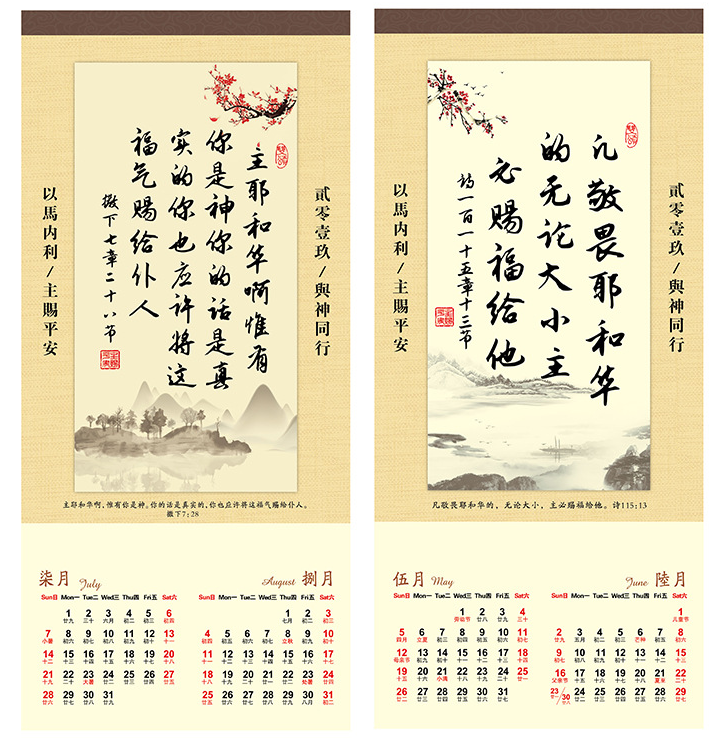 主耶和华啊惟有
你是神你的话是真
实的你也应许将这
福气赐给仆人
撒下七章二十八节
貳零壹玖/與神同行
以馬內利/主賜平安
主耶和华啊,惟有你是神。你的话是真实的,你也应许将这福气赐给仆人。
撒下7:28
柒月 July
Sun日 Mon一 Tue二 Wed三 Thu四 Fri五 Sat六
1 2 3 4 5 6
廿九 三十 六月 初二 初三 初四
7 8 9 10 11 12 13
小暑 初六 初七 初八 初九 初十 十一
14 15 16 17 18 19 20
十二 十三 十四 十五 十六 十七 十八
21 22 23 24 25 26 27
十九 二十 大暑 廿二 廿三 廿四 廿五
28 29 30 31
廿六 廿七 廿八 廿九
August 捌月
Sun日 Mon一 Tue二 Wed三 Thu四 Fri五 Sat六
1 2 3
七月 初二 初三
4 5 6 7 8 9 10
初四 初五 初六 初七 立秋 初九 初十
11 12 13 14 15 16 17
十一 十二 十三 十四 十五 十六 十七
18 19 20 21 22 23 24
十八 十九 二十 廿一 廿二 处暑 廿四
25 26 27 28 29 30 31
廿五 廿六 廿七 廿八 廿九 八月 初二
凡敬畏耶和华
的无论大小主
必赐福给他
诗一百一十五章十三节
貳零壹玖/與神同行
以馬內利/主賜平安
凡敬畏耶和华的,无论大小,主必赐福给他。诗115:13
伍月 May
Sun日 Mon一 Tue二 Wed三 Thu四 Fri五 Sat六
1 2 3 4
劳动节 廿八 廿九 三十
5 6 7 8 9 10 11
四月 立夏 初三 初四 初五 初六 初七
12 13 14 15 16 17 18
母亲节 初九 初十 十一 十二 十三 十四
19 20 21 22 23 24 25
十五 十六 小满 十八 十九 二十 廿一
26 27 28 29 30 31
廿二 廿三 廿四 廿五 廿六 廿七
June 陸月
Sun日 Mon一 Tue二 Wed三 Thu四 Fri五 Sat六
1
儿童节
2 3 4 5 6 7 8
廿九 五月 初二 初三 芒种 初五 初六
9 10 11 12 13 14 15
初七 初八 初九 初十 十一 十二 十三
16 17 18 19 20 21 22
父亲节 十五 十六 十七 十八 夏至 二十
23/30 24 25 26 27 28 29
廿一 廿八 廿二 廿三 廿四 廿五 廿六 廿七